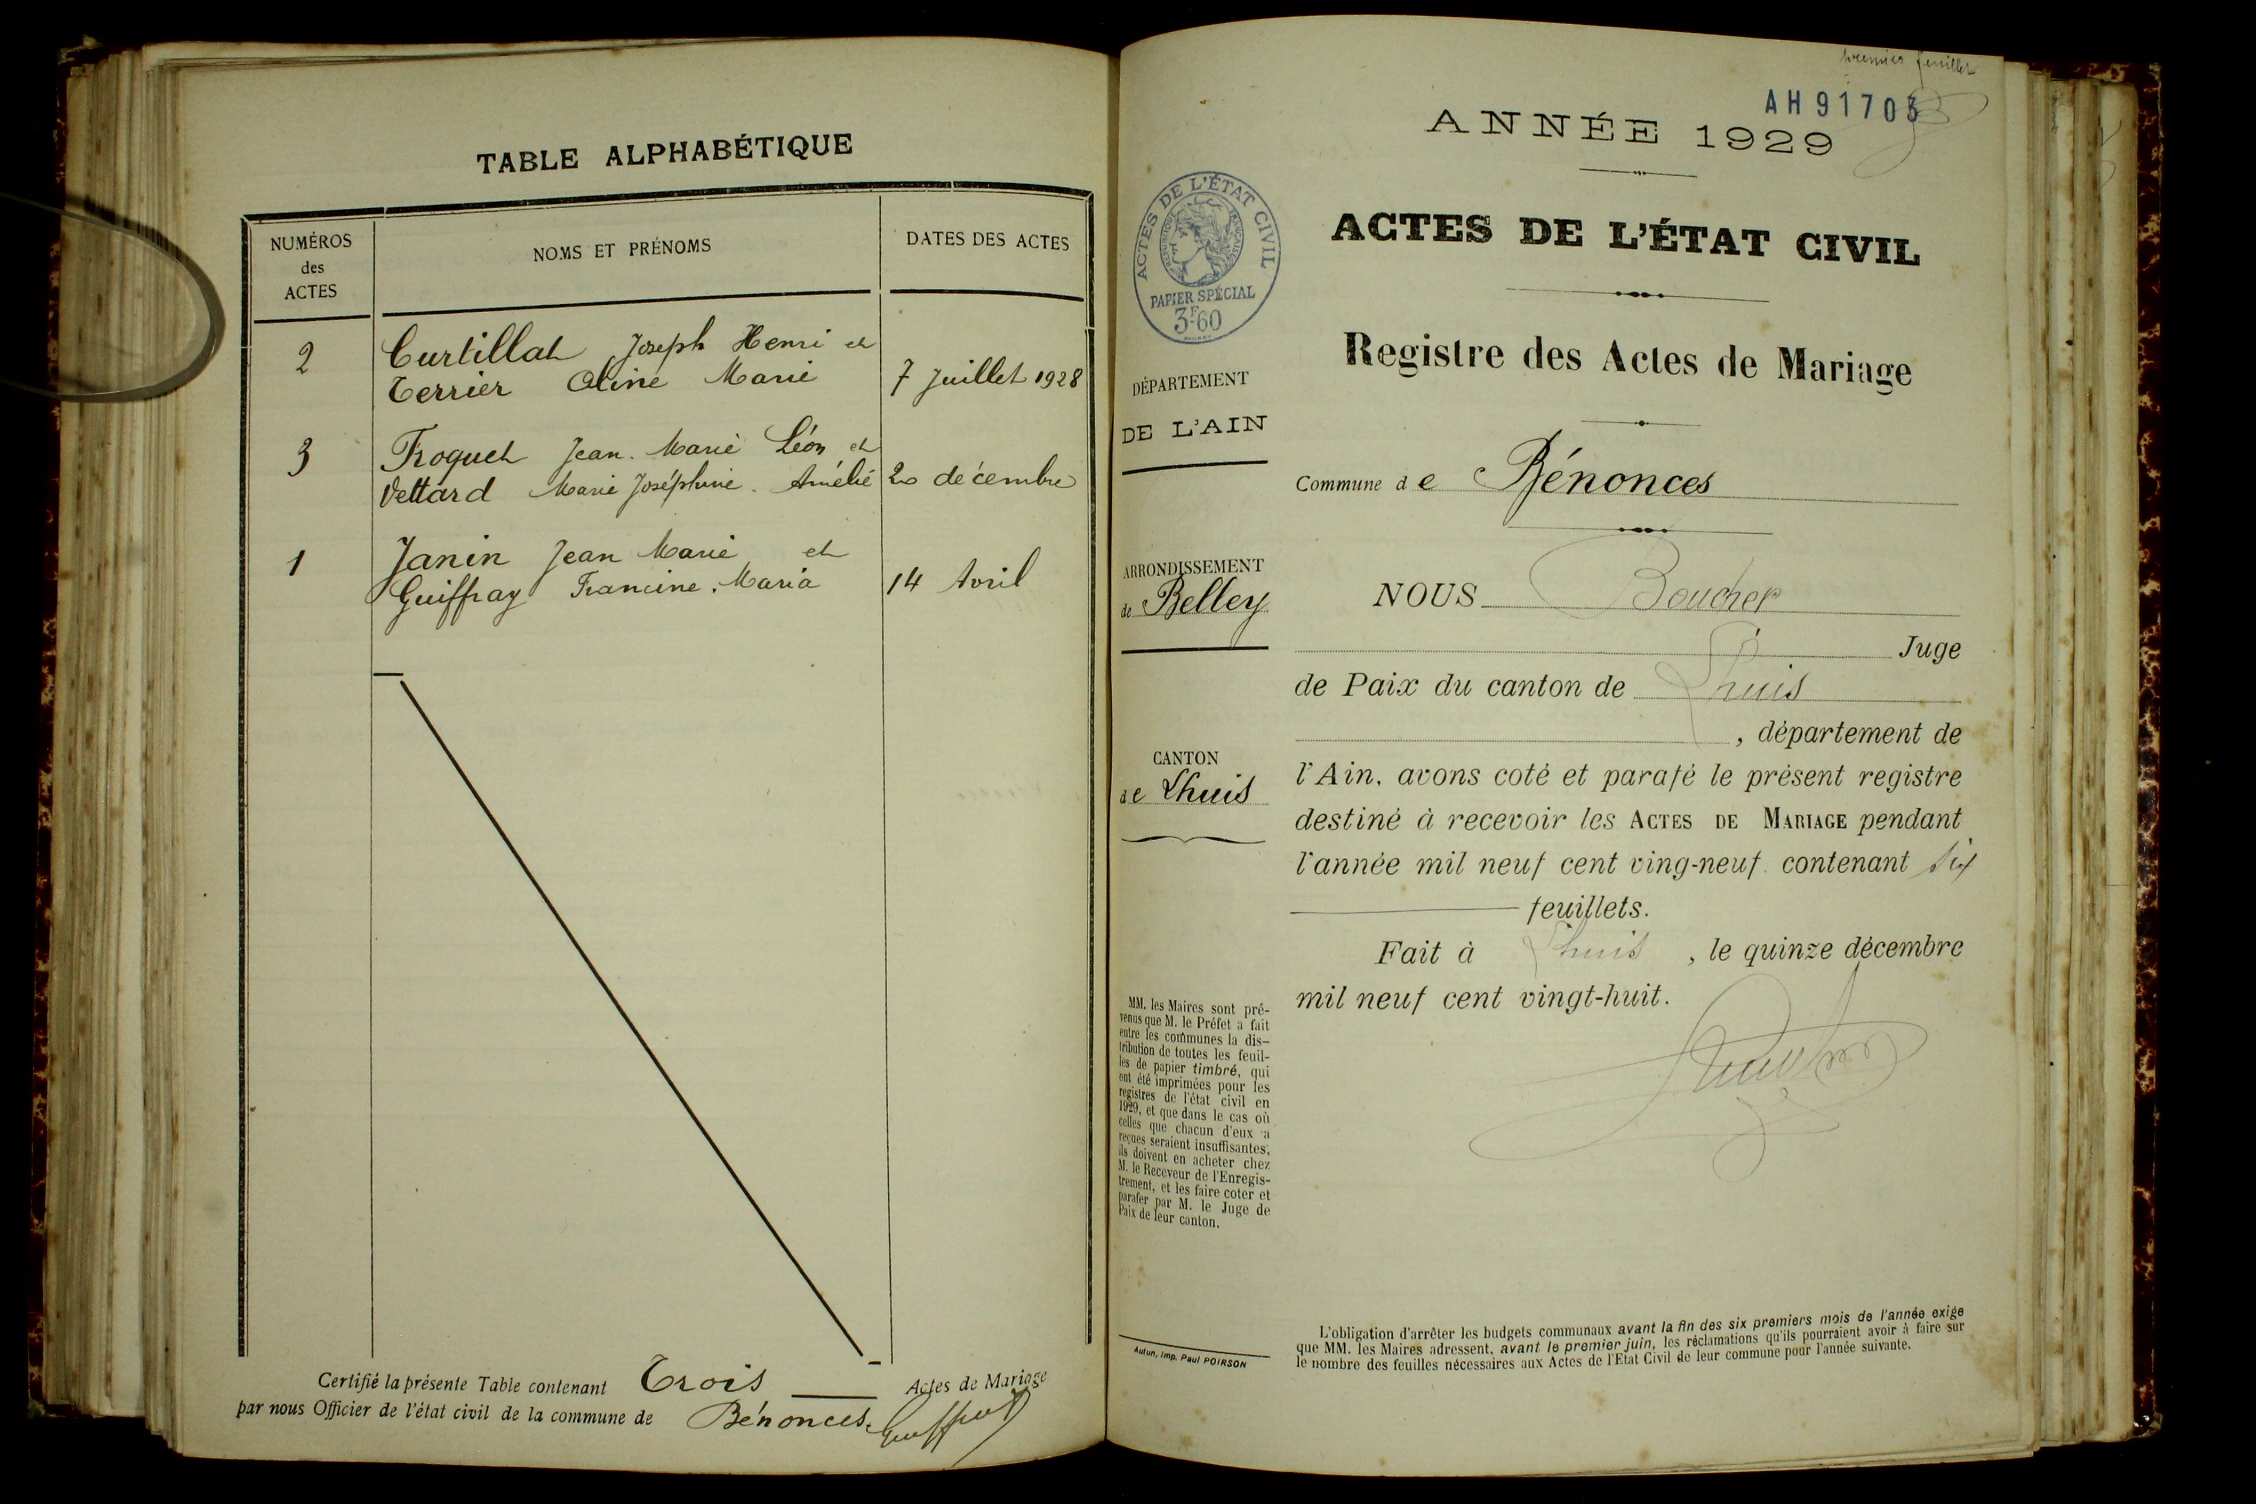 TABLE ALPHABÉTIQUE
NUMÉROS
des
ACTES
NOMS ET PRÉNOMS
DATES DES ACTES
2
Curtillat Joseph Henri et
Terrier Aline Marie
7 Juillet 1928
3
Froquet Jean. Marie Léon et
Vettard Marie Joséphine. Amélie
20 décembre
1
Janin Jean Marie et
Guiffray Francine. Maria
14 Avril
Certifié la présente Table contenant Trois Actes de Mariage
par nous Officier de l'état civil de la commune de Bénonces.
premier feuillet
AH 91703
ANNÉE 1929
ACTES DE L'ÉTAT CIVIL
RÉPUBLIQUE FRANÇAISE
PAPIER SPÉCIAL
3F.60
ACTES DE L'ÉTAT CIVIL
Registre des Actes de Mariage
DÉPARTEMENT
DE L'AIN
Commune de Bénonces
ARRONDISSEMENT
de Belley
CANTON
de Lhuis
NOUS Boucher
Juge
de Paix du canton de Lhuis
, département de
l'Ain, avons coté et parafé le présent registre
destiné à recevoir les ACTES DE MARIAGE pendant
l'année mil neuf cent ving-neuf contenant six
feuillets.
Fait à Lhuis, le quinze décembre
mil neuf cent vingt-huit.
MM. les Maires sont pré-
venus que M. le Préfet a fait
entre les communes la dis-
tribution de toutes les feuil-
les de papier timbré, qui
ont été imprimées pour les
registres de l'état civil en
1929, et que dans le cas où
celles que chacun d'eux a
reçues seraient insuffisantes,
ils doivent en acheter chez
M. le Receveur de l'Enregis-
trement, et les faire coter et
parafer par M. le Juge de
Paix de leur canton.
Autun, Imp. Paul POIRSON
L'obligation d'arrêter les budgets communaux avant la fin des six premiers mois de l'année exige
que MM. les Maires adressent, avant le premier juin, les réclamations qu'ils pourraient avoir à faire sur
le nombre des feuilles nécessaires aux Actes de l'Etat Civil de leur commune pour l'année suivante.